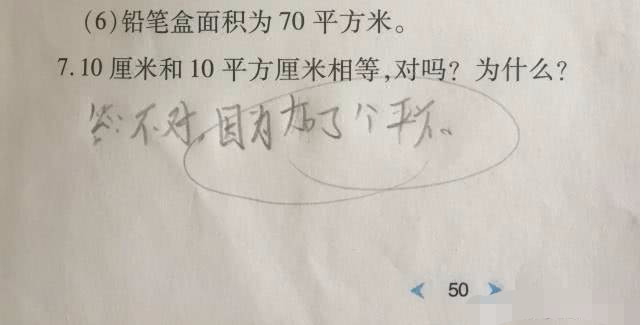 (6)铅笔盒面积为70平方米。
7.10厘米和10平方厘米相等,对吗？为什么？
答:不对,因为加了个平方。
50